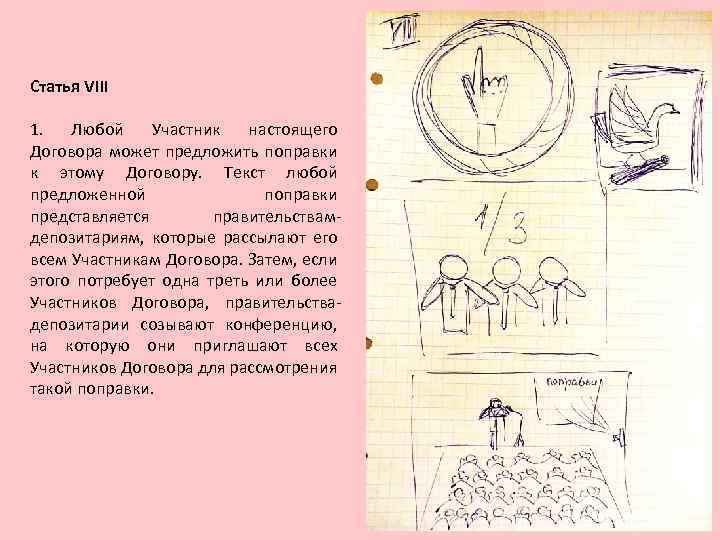 Статья VIII
1. Любой Участник настоящего
Договора может предложить поправки
к этому Договору. Текст любой
предложенной поправки
представляется правительствам-
депозитариям, которые рассылают его
всем Участникам Договора. Затем, если
этого потребует одна треть или более
Участников Договора, правительства-
депозитарии созывают конференцию,
на которую они приглашают всех
Участников Договора для рассмотрения
такой поправки.
VIII
1/3
поправки